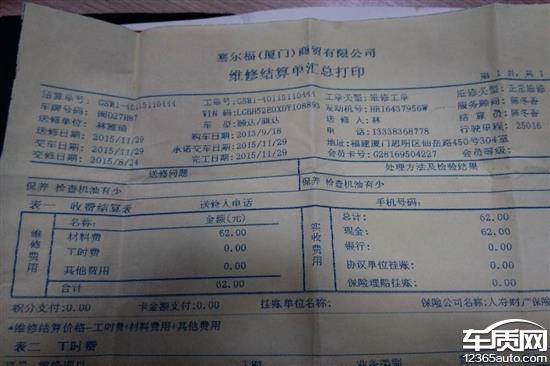 塞尔福(厦门)商贸有限公司
维修结算单汇总打印
第 1 页,共 1
结算单号:GSW1-40115110444 工单号:GSW1-40115110444 工单类型:维修工单 维修类型:正常维修
车牌号码:闽D27H87 VIN 码:LGBH52E0XDY108893 发动机号:HR16437956W 服务顾问:陈冬香
送修单位:林雅琦 车型:颐达/骐达 送修人:林 结算员:陈冬香
送修日期:2015/11/29 购车日期:2013/9/18 电话:13338368778 行驶里程:25016
交车日期:2015/11/29 承诺交车日期:2015/11/29 地址:福建厦门思明区仙岳路450号304室
交修日期:2015/8/24 完工日期:2015/11/29 会员卡号:G28169504227 会员等级:
送修问题 处理方法及检验结果
保养 检查机油有少 保养 检查机油有少
表一 收费结算表 送修人电话 手机号码:
维修费用
名称: 金额(元)
材料费 62.00
工时费 0.00
其他费用 0.00
合计 62.00
实收费用
总计: 62.00
现金: 62.00
银行: 0.00
协议单位挂账: 0.00
保险理赔挂账: 0.00
积分支付:0.00 卡金额支付:0.00 挂账单位名称: 保险公司名称:人寿财产保险
*维修结算价格=工时费+材料费用+其他费用
表二 工时费
车质网
12365auto.com